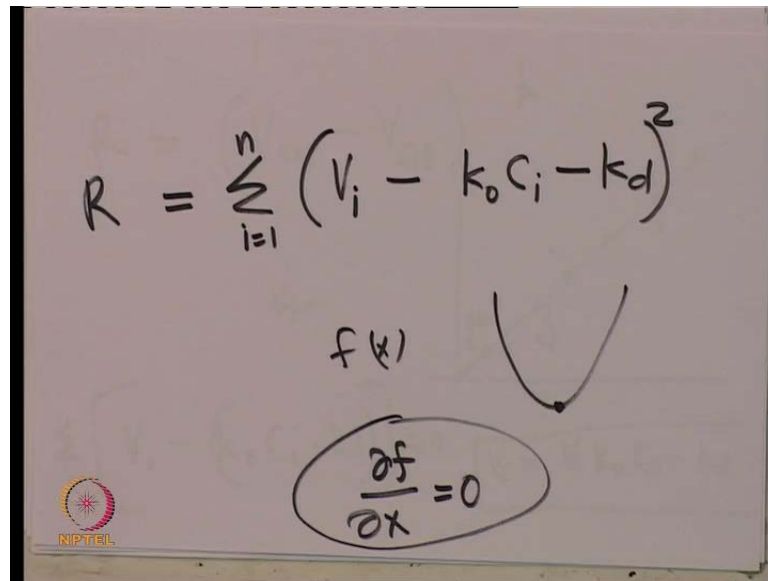 R = Σ_{i=1}^{n} (V_i - k_o C_i - k_d)^2
f(x)
∂f/∂x = 0
NPTEL